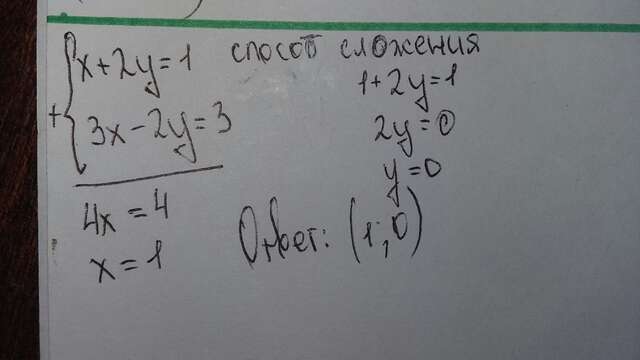 x+2y=1 способ сложения
+ 3x-2y=3
4x=4
x=1
1+2y=1
2y=0
y=0
Ответ: (1;0)